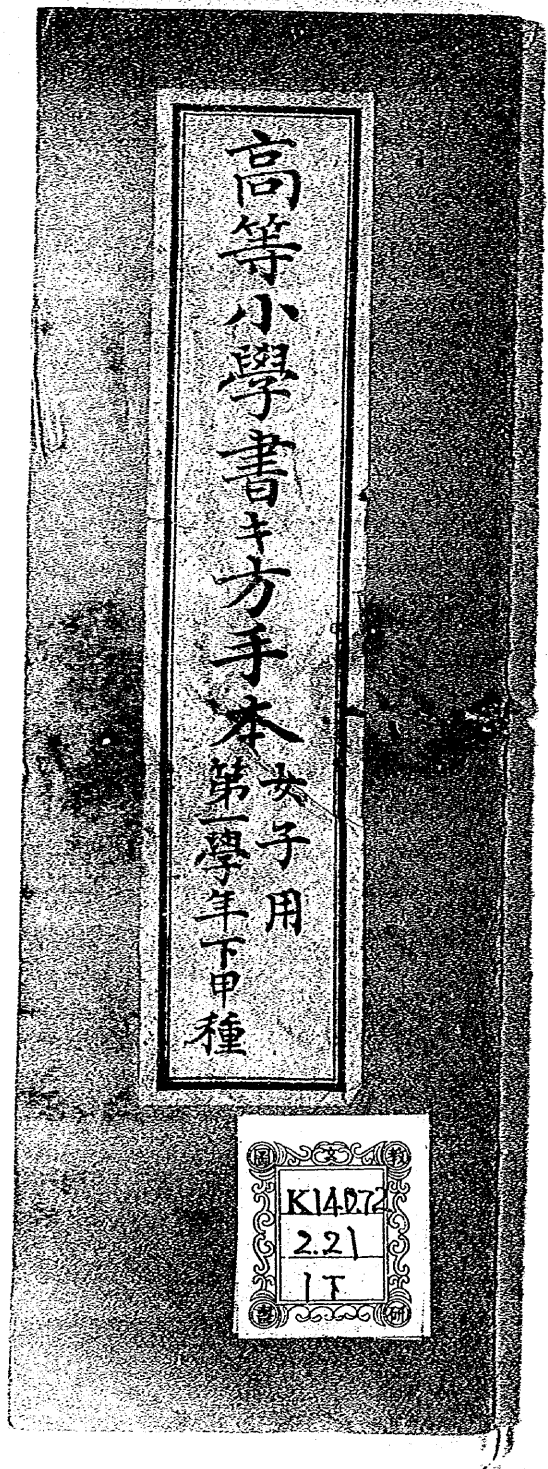 高等小學書キ方手本
女子用
第一學年下甲種
圖文教
K140.72
2.21
1下
書研